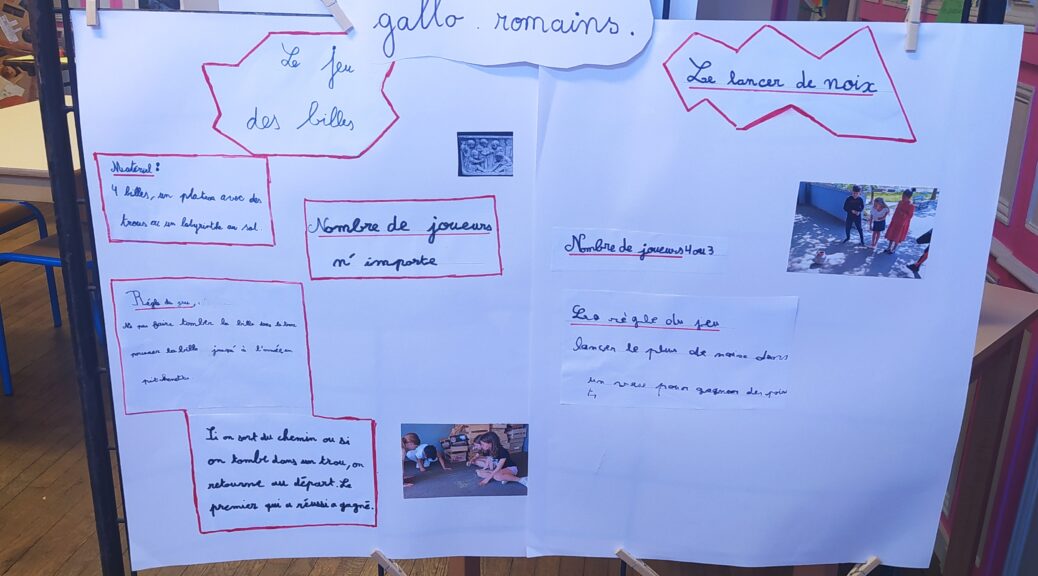 gallo. romains.
Le jeu
des billes
Matériel :
4 billes, un plateau avec des
trous ou un labyrinthe au sol.
Nombre de joueurs
n'importe
Règle du jeu
Ne pas faire tomber la bille dans le trou
pousser la bille jusqu'à l'arrivée en
Si on sort du chemin ou si
on tombe dans un trou, on
retourne au départ. Le
premier qui a réussi a gagné.
Le lancer de noix
Nombre de joueurs 4 ou 3
Les règle du jeu
lancer le plus de noix dans
un vase pour gagner des